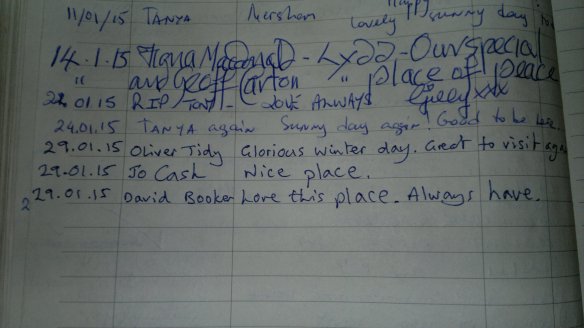 Happy
11/01/15 TANYA Mersham lovely sunny day to
14.1.15 Fiona MacDonald - Lydd - Our special
" and Geoff Carton " place of peace
22.01.15 RIP TONY - LOVE ALWAYS xxx
24.01.15 TANYA again Sunny day again. Good to be here.
29.01.15 Oliver Tidy Glorious winter day. Great to visit again
29.01.15 Jo Cash Nice place.
29.01.15 David Booker Love this place. Always have.
2